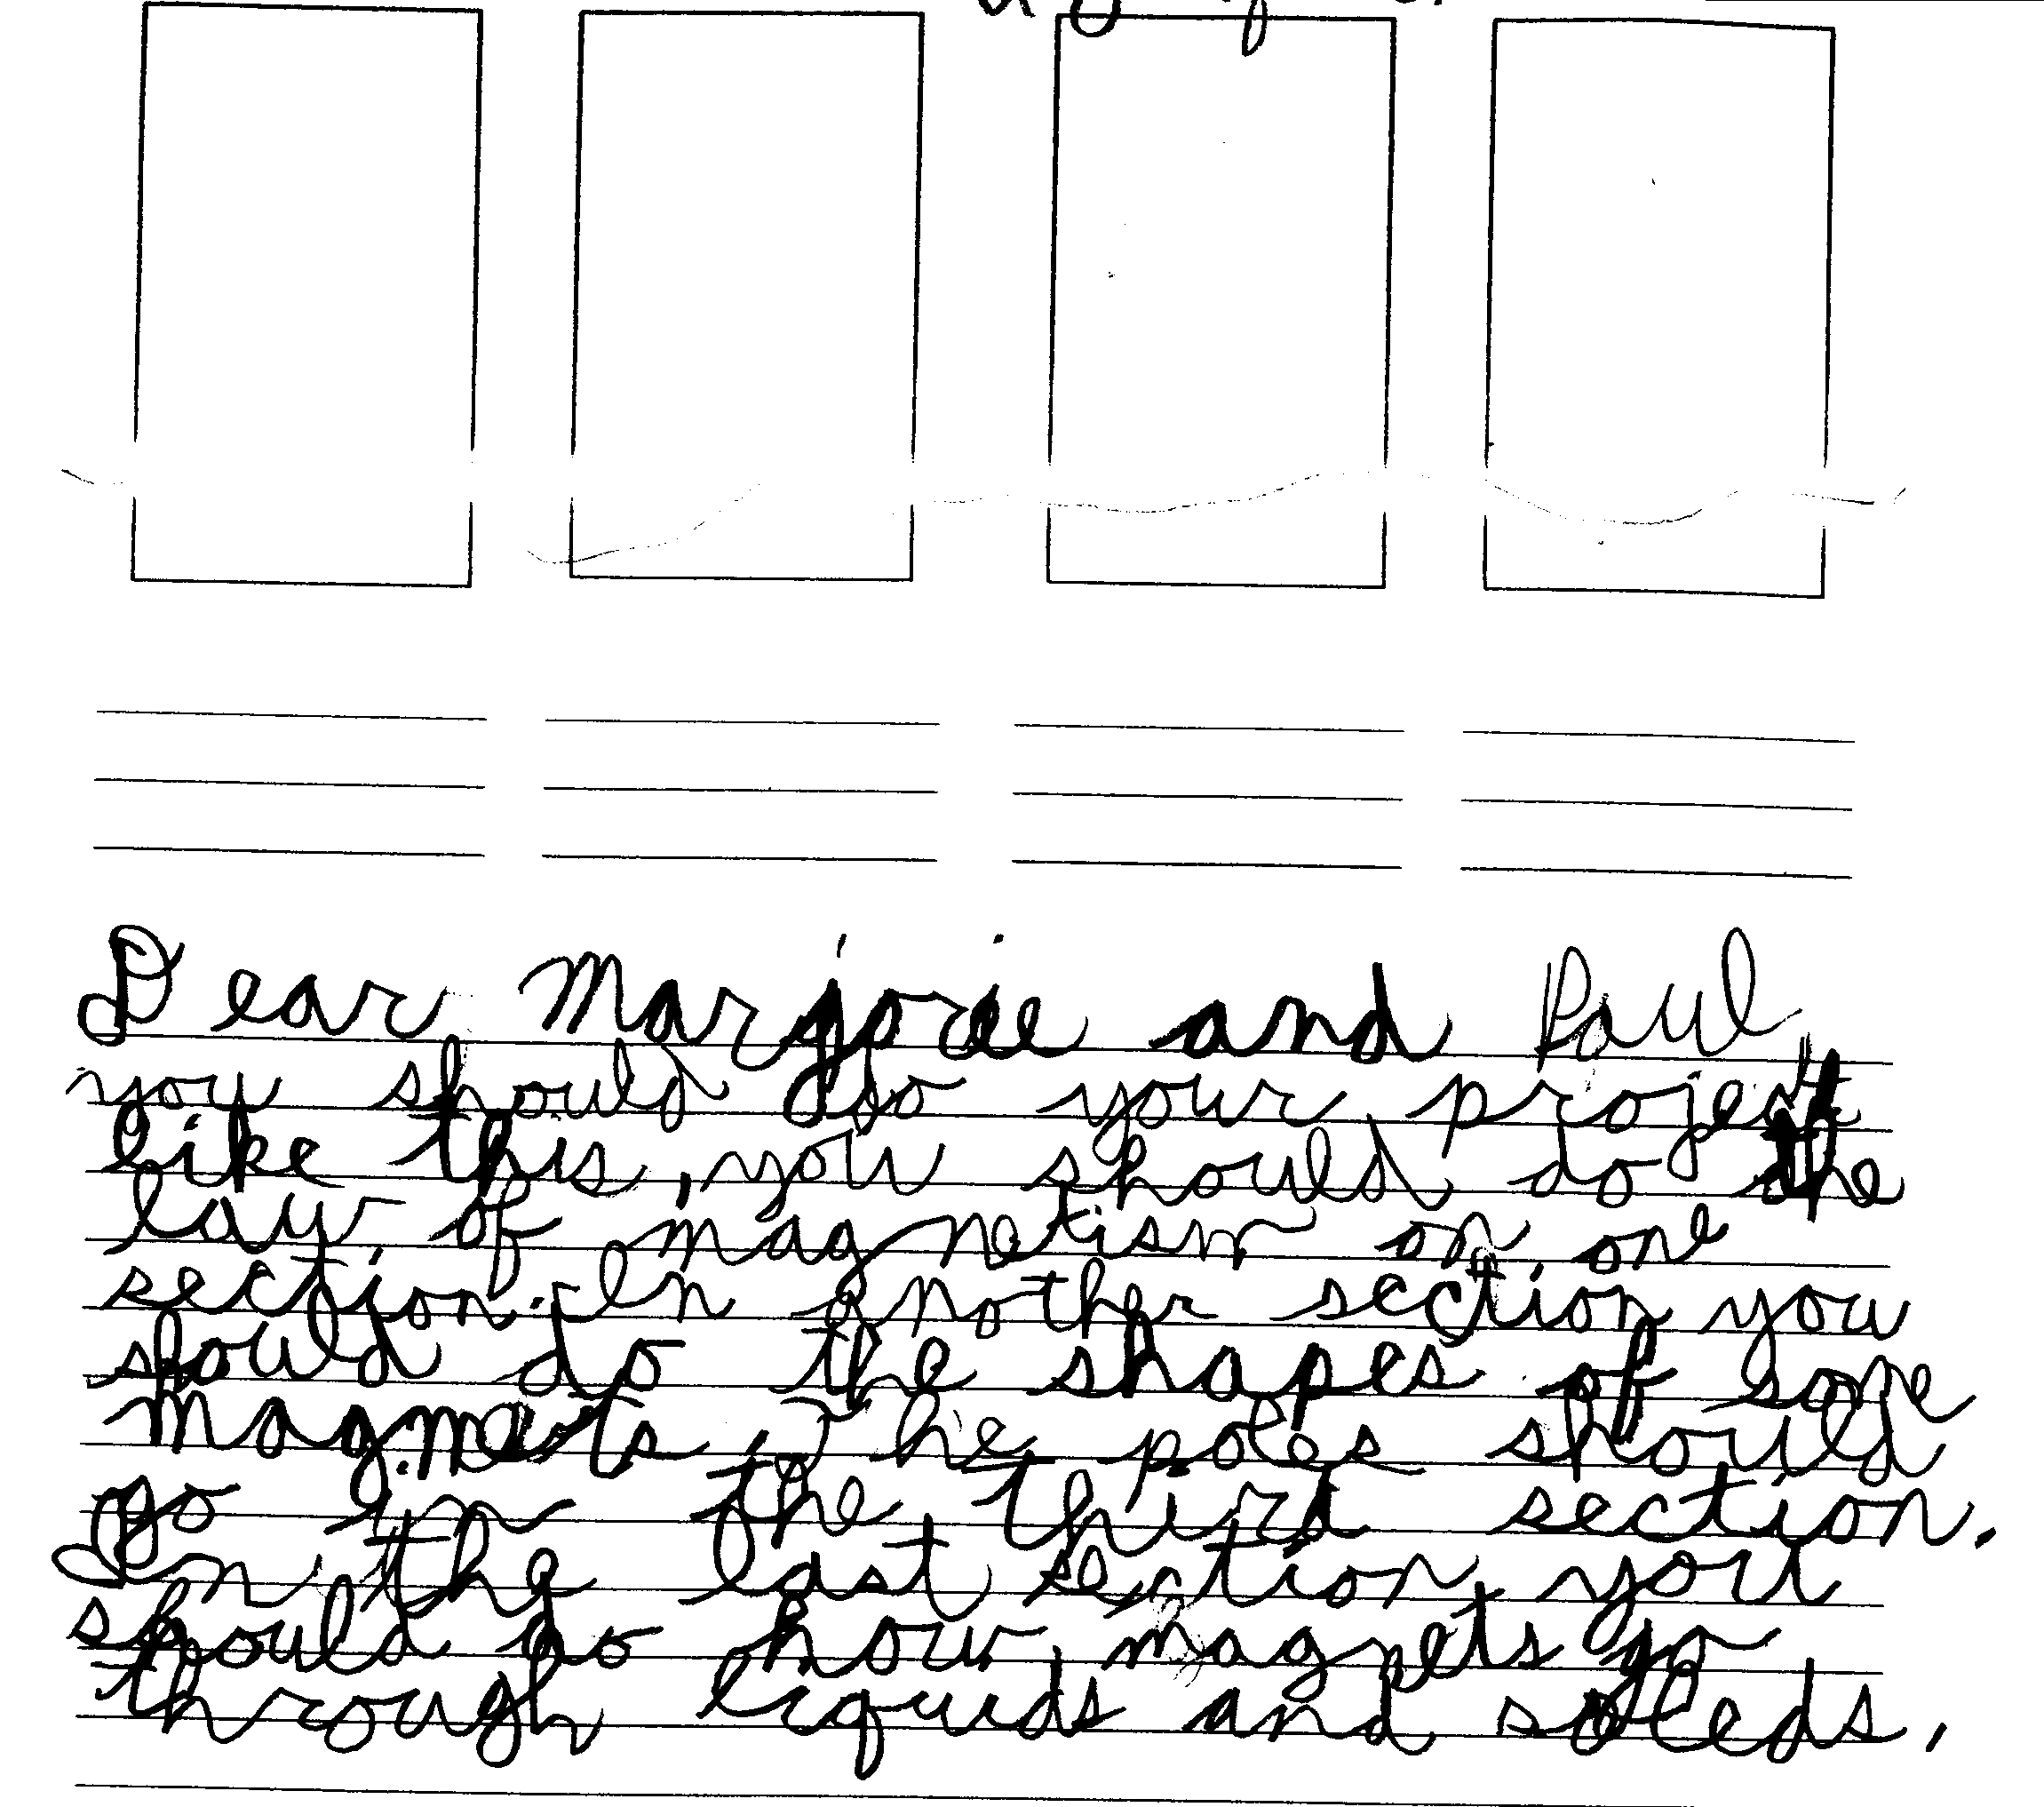 Dear Marjorie and Paul,
you should do your project
like this, you should do the
law of magnetism on one
section. In another section you
should do the shapes of some
magnets. The poles should
go in the third section.
In the last section you
should do how magnets go
through liquids and soleds.